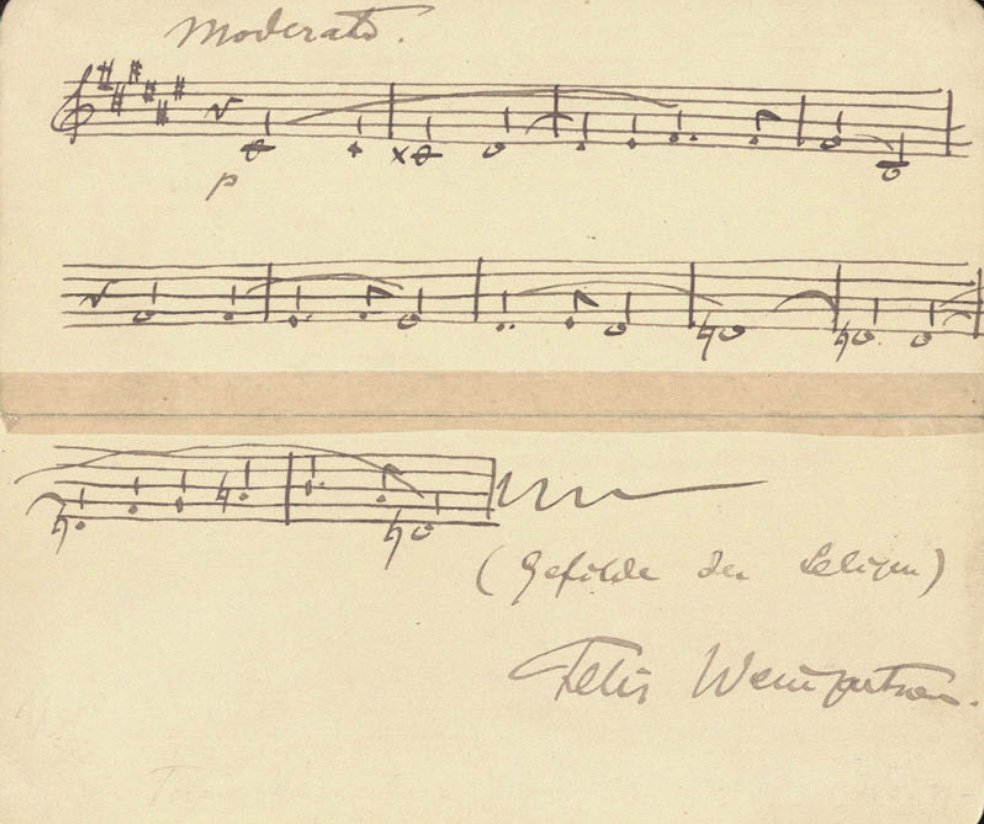 Moderato.
p
(Gefilde der Seligen)
Felix Weingartner.